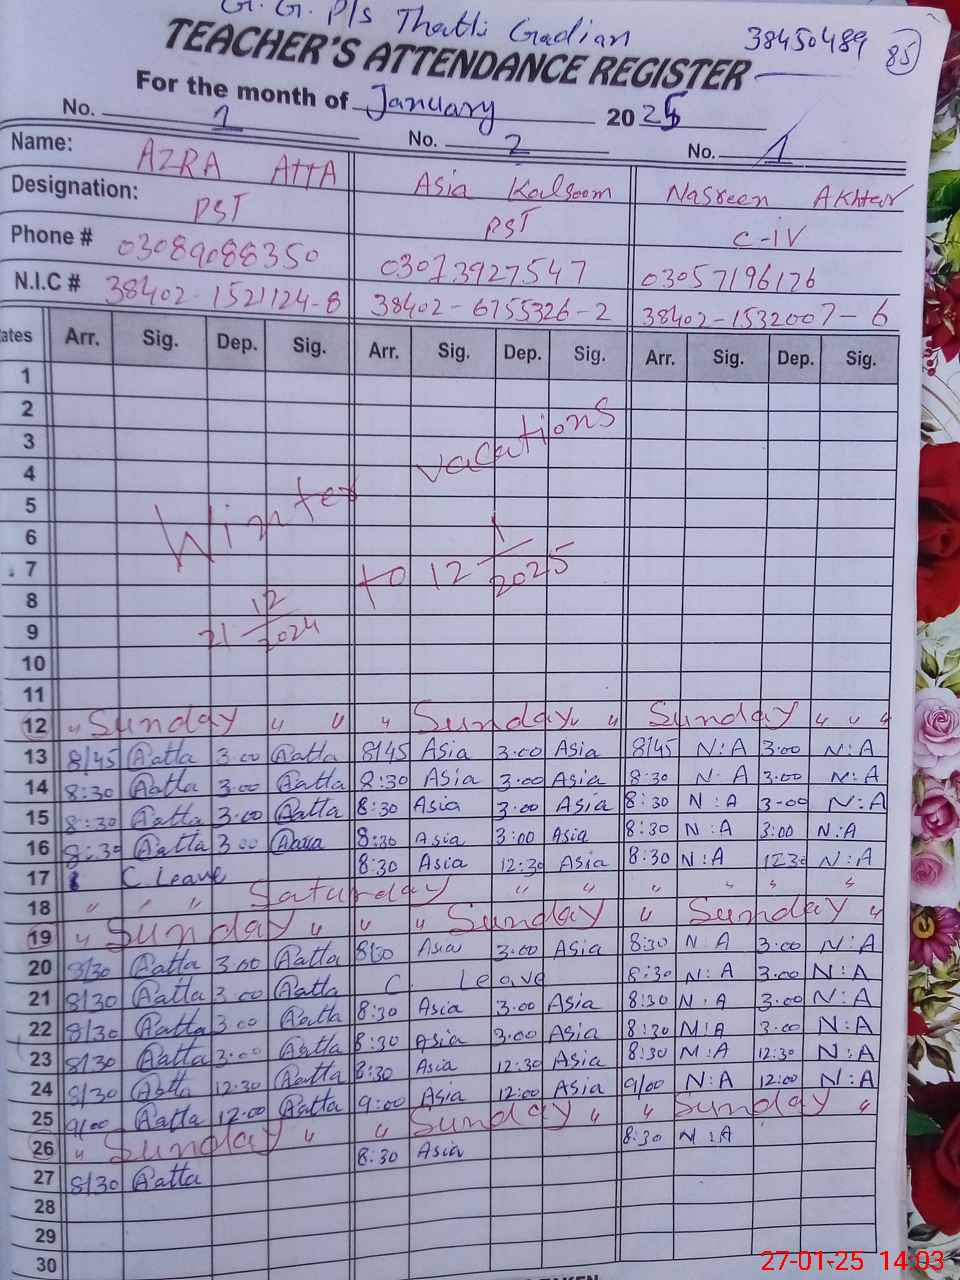 G. G. P/S Thatti Gadian 38450489 85
TEACHER'S ATTENDANCE REGISTER
For the month of January 2025
No. 1 No. 2 No. 1
Name: AZRA ATTA Asia Kalsoom Nasreen Akhtar
Designation: PST PST C-IV
Phone # 03089088350 03073927547 03057196176
N.I.C # 38402-1521124-8 38402-6755326-2 38402-1532007-6
ates Arr. Sig. Dep. Sig. Arr. Sig. Dep. Sig. Arr. Sig. Dep. Sig.
1
2
3
4
5
6
7
8
9
10
11
Winter vacations
21 12/2024 to 12 1/2025
12 " Sunday " " " Sunday " " Sunday " " "
13 8/45 Aatta 3.00 Aatta 8/45 Asia 3.00 Asia 8/45 N:A 3.00 N:A
14 8:30 Aatta 3.00 Aatta 8:30 Asia 3.00 Asia 8:30 N:A 3.00 N:A
15 8:30 Aatta 3.00 Aatta 8:30 Asia 3.00 Asia 8:30 N:A 3-00 N:A
16 8:30 Aatta 3.00 Aatta 8:30 Asia 3:00 Asia 8:30 N:A 3:00 N:A
17 C. Leave 8:30 Asia 12:30 Asia 8:30 N:A 12:30 N:A
18 " " " Saturday " " " " " "
19 " Sunday " " " Sunday " Sunday "
20 8/30 Aatta 3.00 Aatta 8/30 Asia 3.00 Asia 8:30 N:A 3.00 N:A
21 8/30 Aatta 3.00 Aatta C. Leave 8:30 N:A 3.00 N:A
22 8/30 Aatta 3.00 Aatta 8:30 Asia 3.00 Asia 8:30 N:A 3.00 N:A
23 8/30 Aatta 3.00 Aatta 8:30 Asia 3:00 Asia 8:30 N:A 3.00 N:A
24 8/30 Aatta 12:30 Aatta 8:30 Asia 12:30 Asia 8:30 N:A 12:30 N:A
25 9/00 Aatta 12:00 Aatta 9:00 Asia 12:00 Asia 9/00 N:A 12:00 N:A
26 " Sunday " " Sunday " " Sunday "
27 8/30 Aatta 8:30 Asia 8:30 N:A
28
29
30
27-01-25 14:03